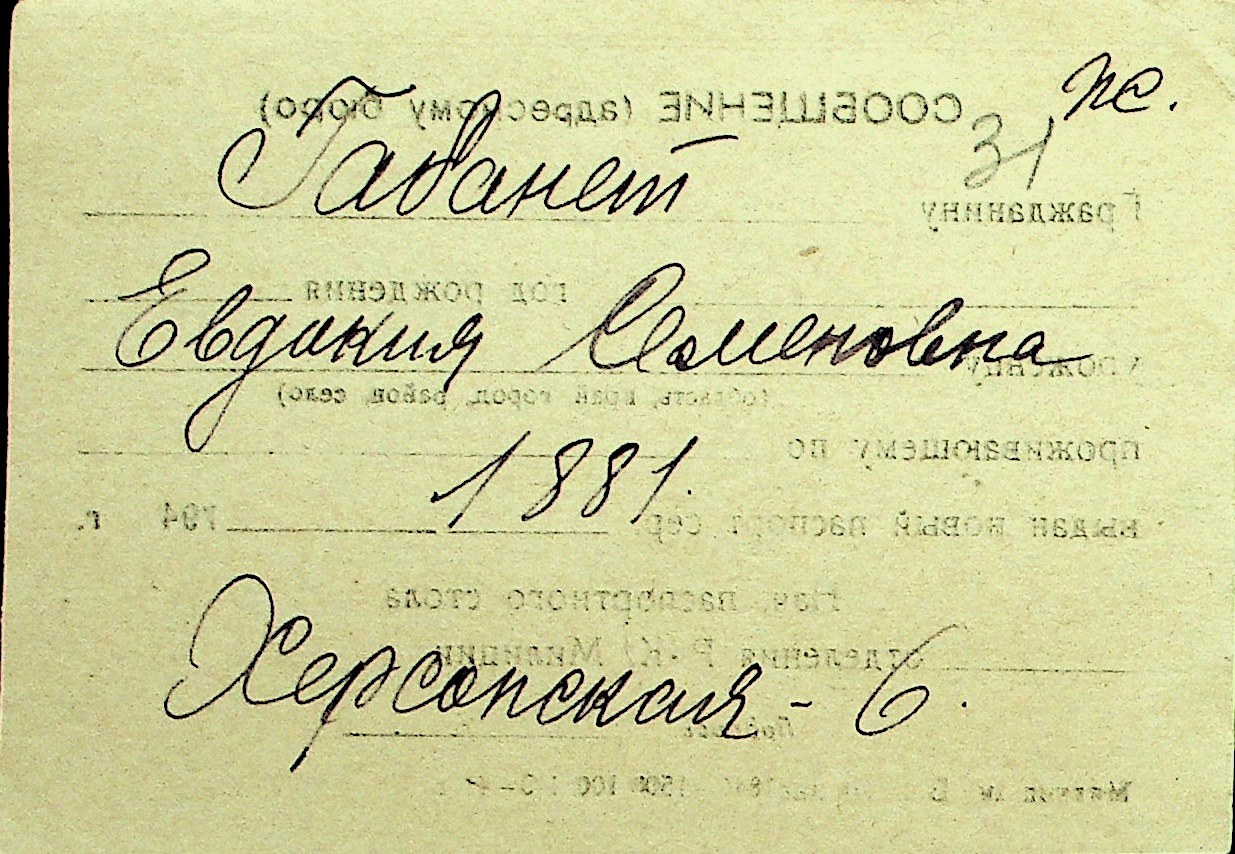 пс.
31
Габанет
Евдокия Семеновна
1881.
Херсонская - 6.
СООБЩЕНИЕ (адресному бюро)
Гражданину
год рождения
уроженцу
(область, край город, район, село)
проживающему по
выдан новый паспорт сер.
194 г.
Нач. паспортного стола
отделения Р.К. Милиции